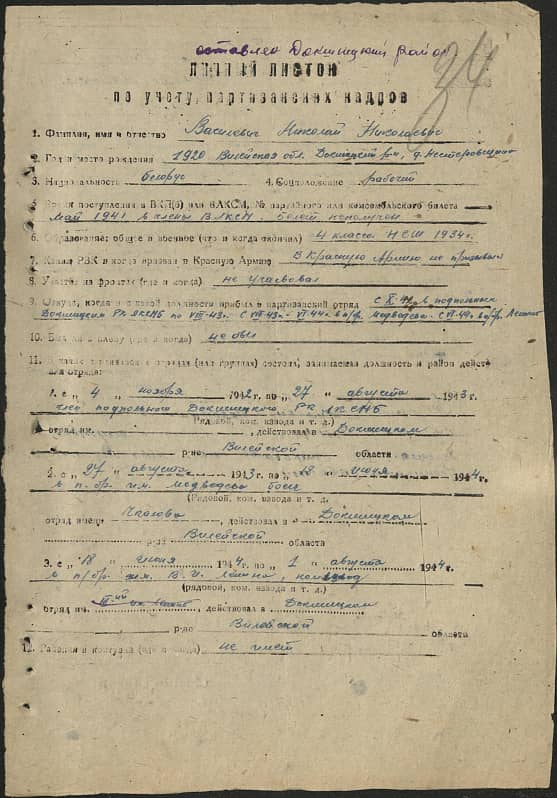 оставлен Докшицкий район
34
ЛИЧНЫЙ ЛИСТОК
по учету партизанских кадров
1. Фамилия, имя и отчество Василевич Николай Николаевич
2. Год и место рождения 1920 Вилейская обл. Докшицкий р-н, д. Нестеровщина
3. Национальность белорус 4. Соцположение рабочий
5. Время поступления в ВКП(б) или ВЛКСМ, № партийного или комсомольского билета
май 1941 в члены ВЛКСМ. билет не получен
6. Образование: общее и военное (что и когда окончил) 4 класса НСШ 1934г.
7. Каким РВК и когда призван в Красную Армию в Красную Армию не призывался
8. Участие на фронтах (где и когда) не участвовал
9. Откуда, когда и с какой должности прибыл в партизанский отряд с XI-42 в подпольном
Докшицком РК ЛКСМБ по VIII-43г. с VIII-43г.- VI-44г. в п/бр. Медведева с VI-44г. в п/бр. Ленина
10. Был ли в плену (где и когда) не был
11. В каких партизанских отрядах (или группах) состоял, занимаемая должность и район действия отряда:
1. с „ 4 „ ноября 1942 г. по „ 27 „ августа 1943 г.
член подпольного Докшицкого РК ЛКСМБ
(Рядовой, ком. взвода и т. д.)
отряд им. , действовал в Докшицком
р-не Вилейской области.
2. с „ 27 „ августа 1943 г. по „ 18 „ июня 1944 г.
в п/бр. им. Медведева боец
(Рядовой, ком. взвода и т. д.
отряд имени Чкалова, действовал в Докшицком
Вилейской области
3. с „ 18 „ июня 1944 г. по „ 1 „ августа 1944 г.
в п/бр. им. В. И. Ленина,
(рядовой, ком. взвода и т. д.)
отряд им. , действовал в Докшицком
р-не Вилейской области
12. Ранения и контузии (где и когда) не имеет